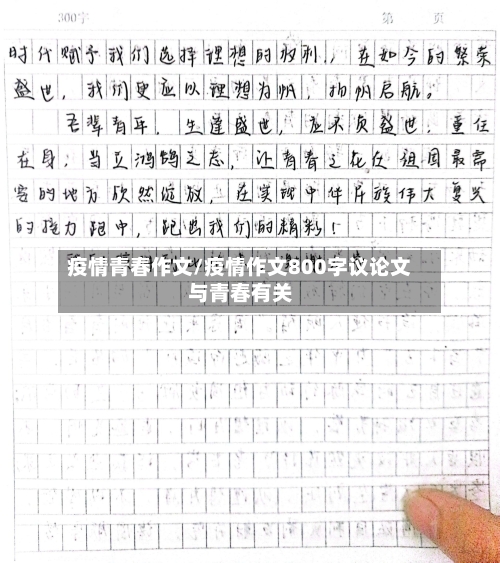 300字 第 页
时代赋予我们选择理想的权利,在如今的繁荣
盛世,我们更应以理想为帆,扬帆启航。
吾辈青年,生逢盛世,应不负盛世,重任
在身,当立鸿鹄之志,让青春之花在祖国最需
要的地方欣然绽放,在实现中华民族伟大复兴
的接力跑中,跑出我们的精彩!
疫情青春作文/疫情作文800字议论文
与青春有关